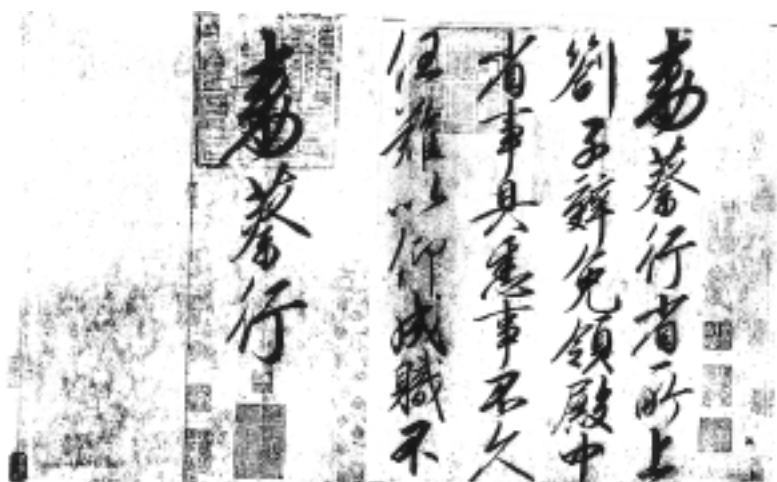 勅蔡行省所上
劄子辭免領殿中
省事具悉事不久
任難以仰成職不
勅蔡行